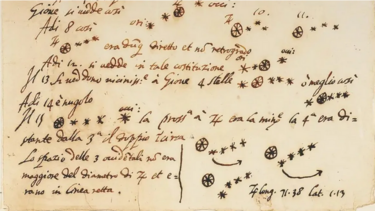 Gioue si uedde così
Adi 8 così
era dunq diretto et nõ retrogrado
Adi 12. si uedde in tale costituzione
Il 13. si ueddono vicinissᵉ à Gioue 4 stelle ò meglio così
Adi 14 è nugolo
Il 15 la prossᵃ à ♃ era la minᵉ la 4ᵃ era di=
stante dalla 3ᵃ il doppio Incirca
Lo spatio delle 3 occidētali nõ era
maggiore del diametro di ♃ et e=
rano in linea retta.
♃ long. 71.38 Lat. 1.13